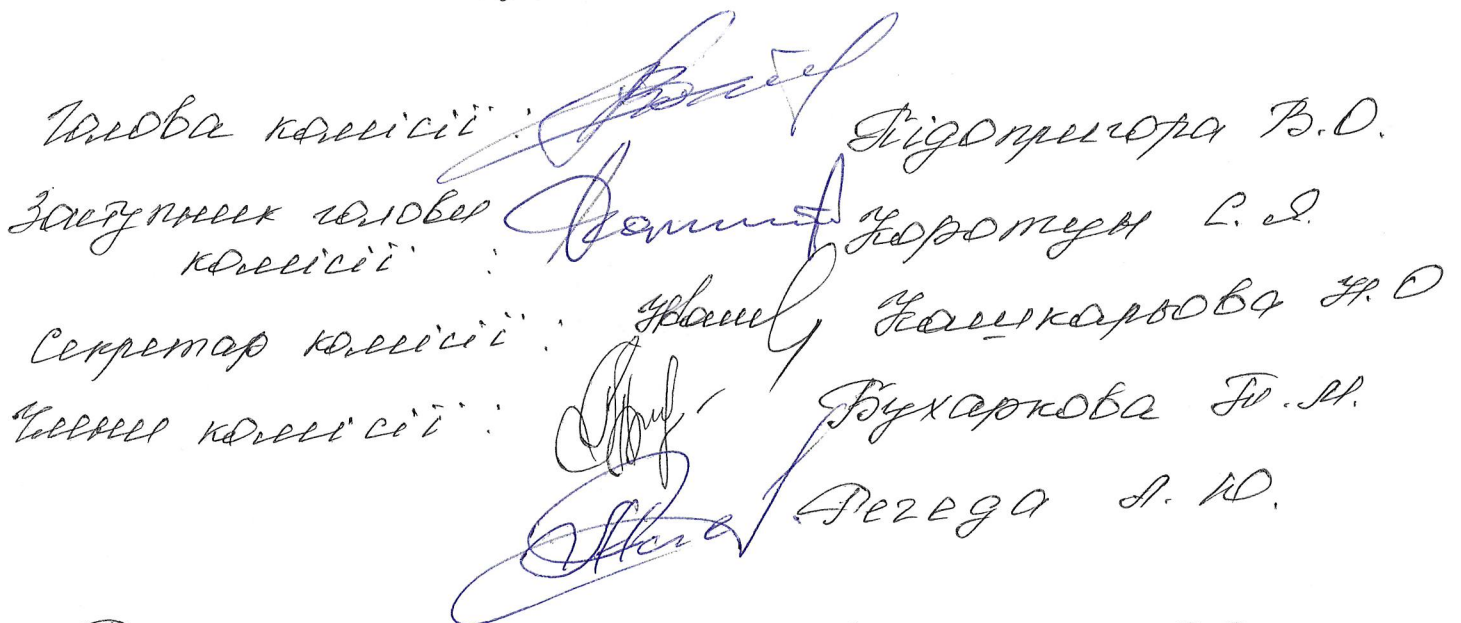 Голова комісії: Підопригора В.О.
Заступник голови Коротун С.Я.
комісії:
Секретар комісії: Кашкарьова Н.О
Члени комісії: Бухаркова Т.М.
Регеда Л.Ю.